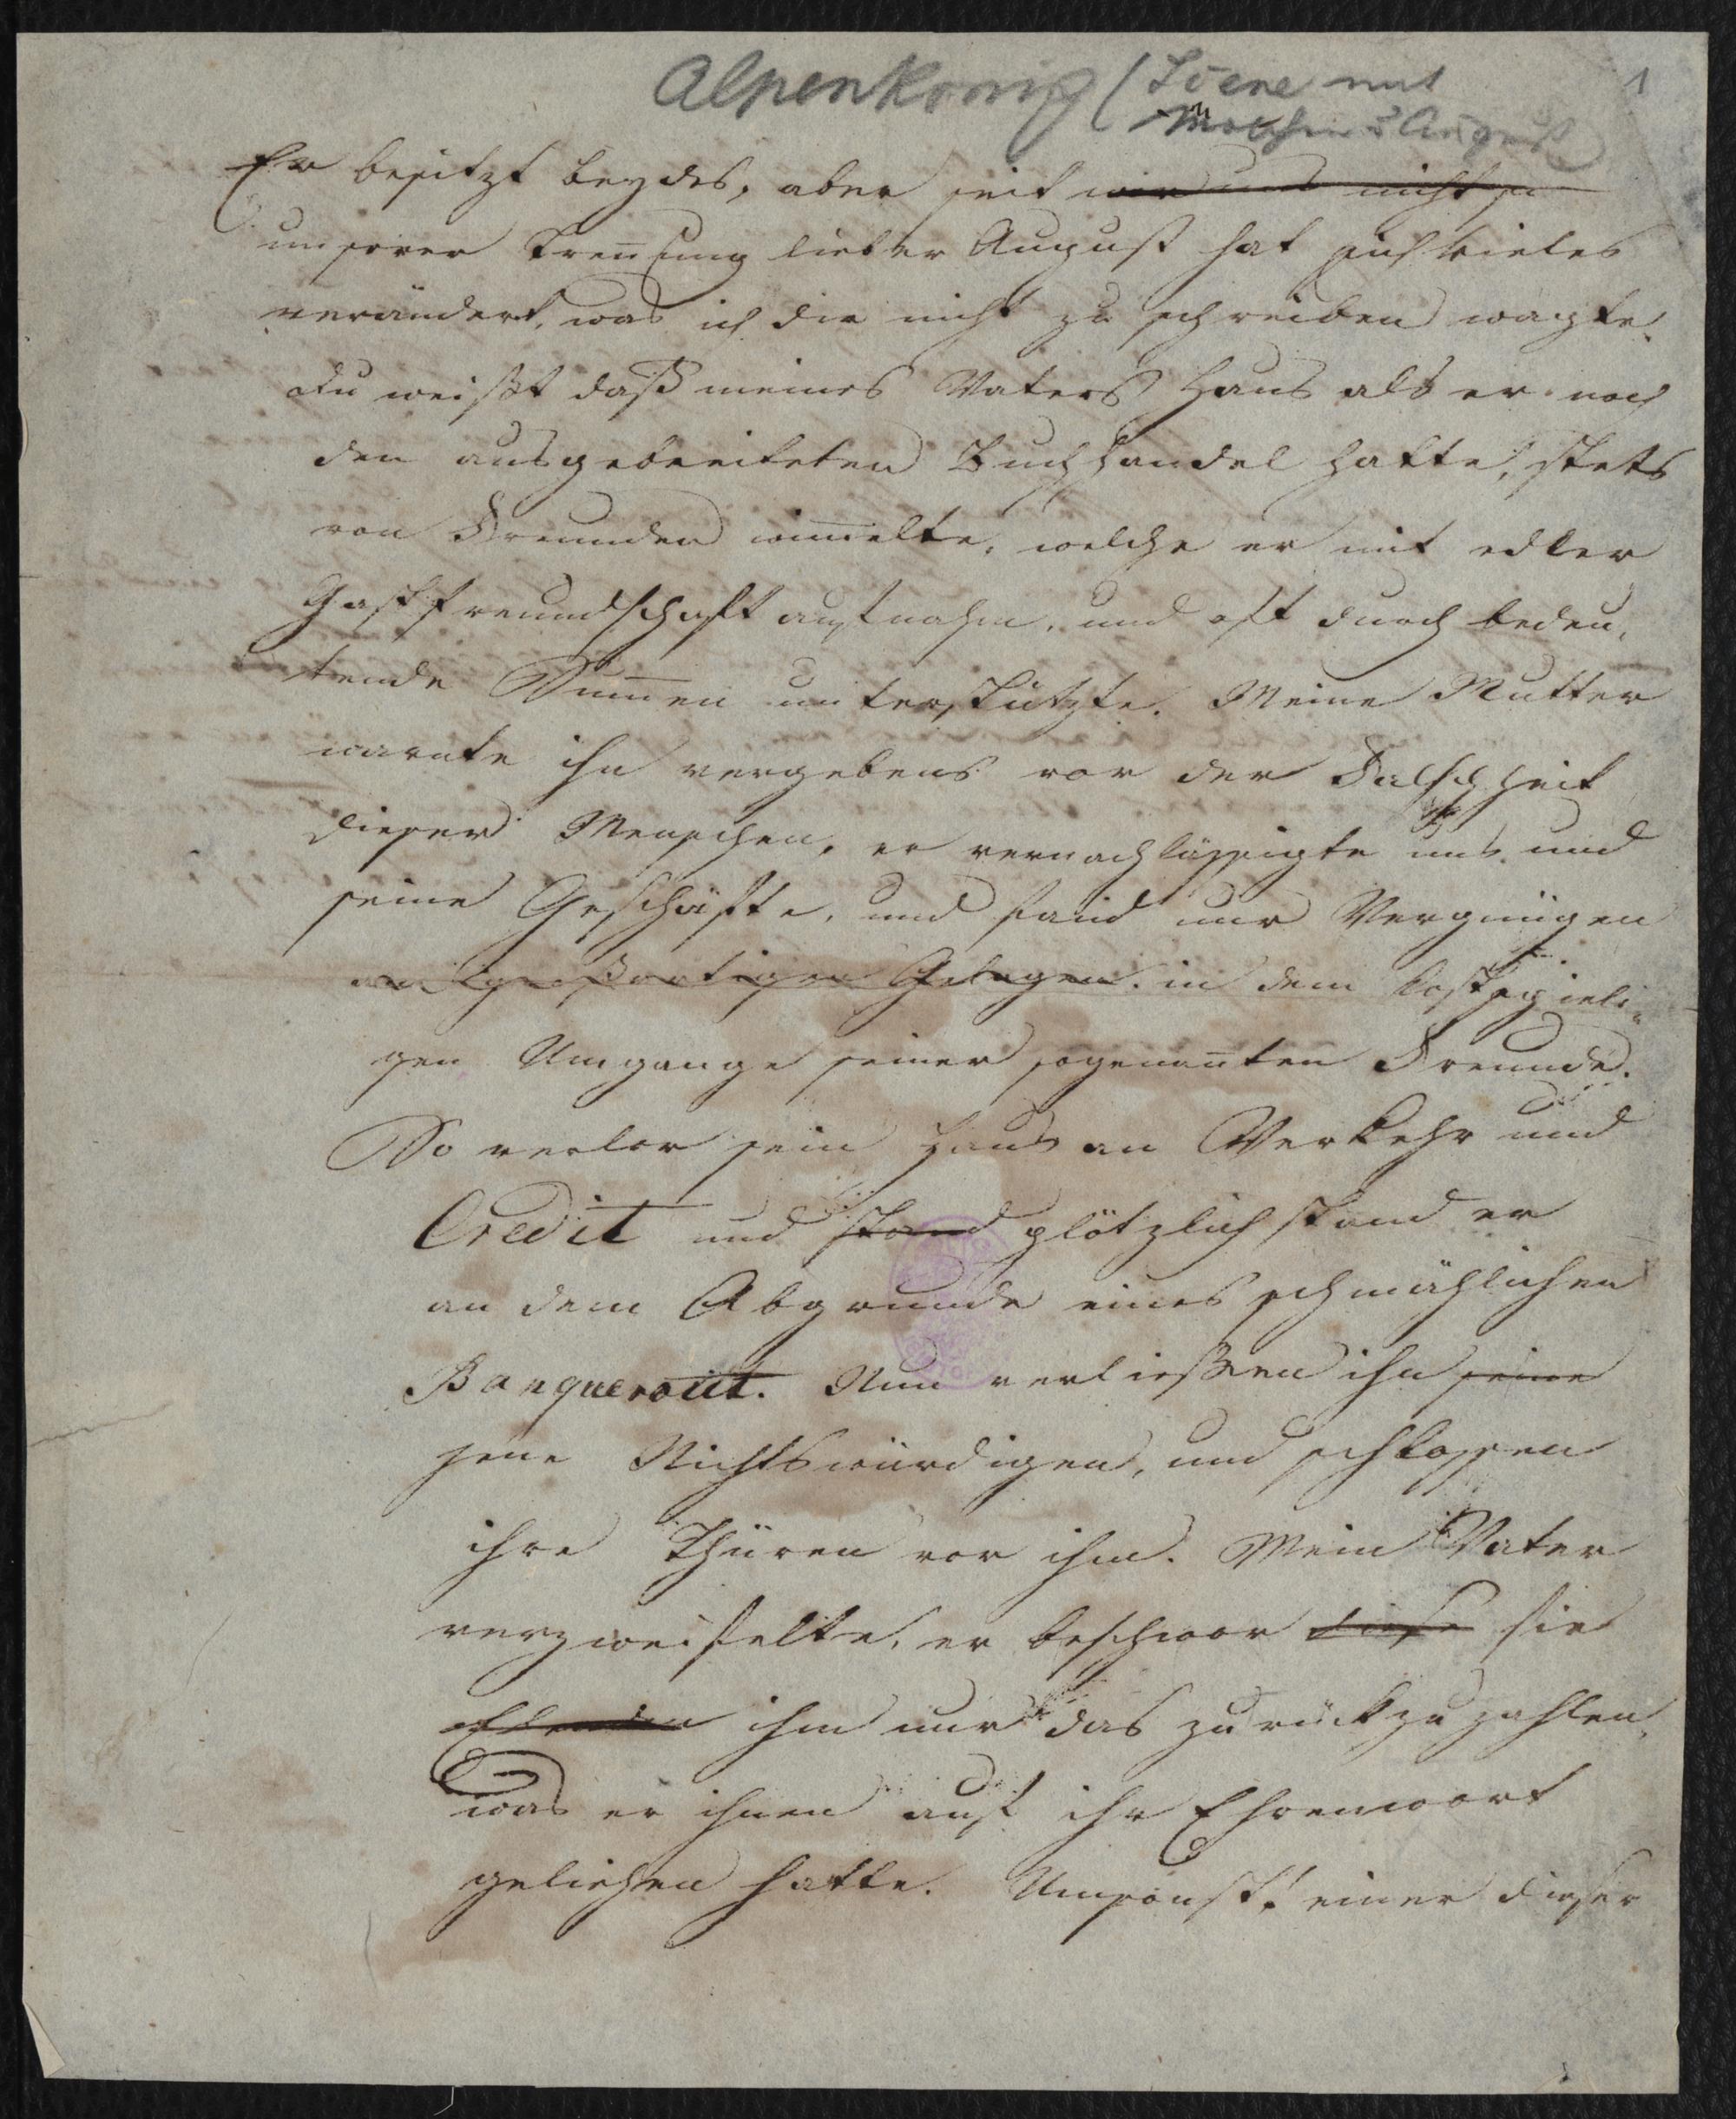 Alpenkönig (Scene mit 1
Malchen u August)
Er besitzt beydes, aber seit wir uns nicht se
unserer Treñung lieber August hat sich vieles
verändert, was ich dir nicht zu schreiben wagte.
Du weißt daß meines Vaters Haus als er noch
den ausgebreiteten Buchhandel hatte, stets
von Freunden wim̅elte, welche er mit edler
Gastfreundschaft aufnahm, und oft durch bedeu-
tende Sum̅en unterstützte. Meine Mutter
warnte ihn vergebens vor der Falschheit
dieser Menschen, er vernachlässigte uns und
seine Geschäfte, und fand nur Vergnügen
an großartigen Gelagen. in dem kostspieli-
gen Umgange seiner sogenañten Freunde.
So verlor sein Haus an Verkehr und
Credit und stand plötzlich stand er
an dem Abgrunde eines schmählichen
Banquerout. Nun verließen ihn seine
jene Nichtswürdigen, und schlossen
ihre Thüren vor ihm. Mein Vater
verzweifelte, er beschwor diese sie
Elenden ihm nur das zurückzuzahlen,
was er ihnen auf ihr Ehrenwort
geliehen hatte. Umsonst! einer dieser